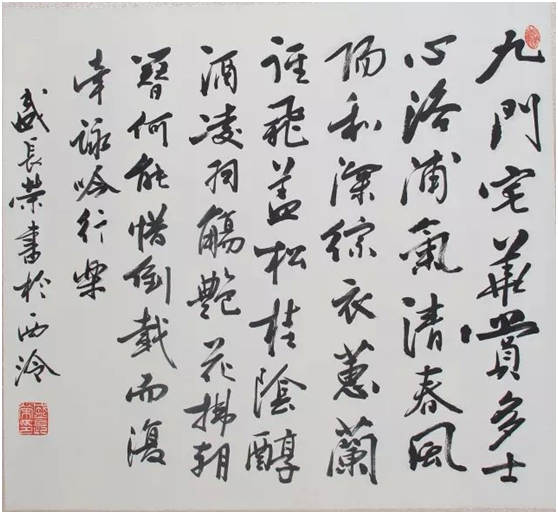 九門宅華賞多士
心洛浦氣清春風
陽和深綜衣蕙蘭
飛蓋松桂陰醇
酒凌羽觴艷花拂朝
簪何能惜倒載而復
牽詠吟行樂
盛長榮書於西泠